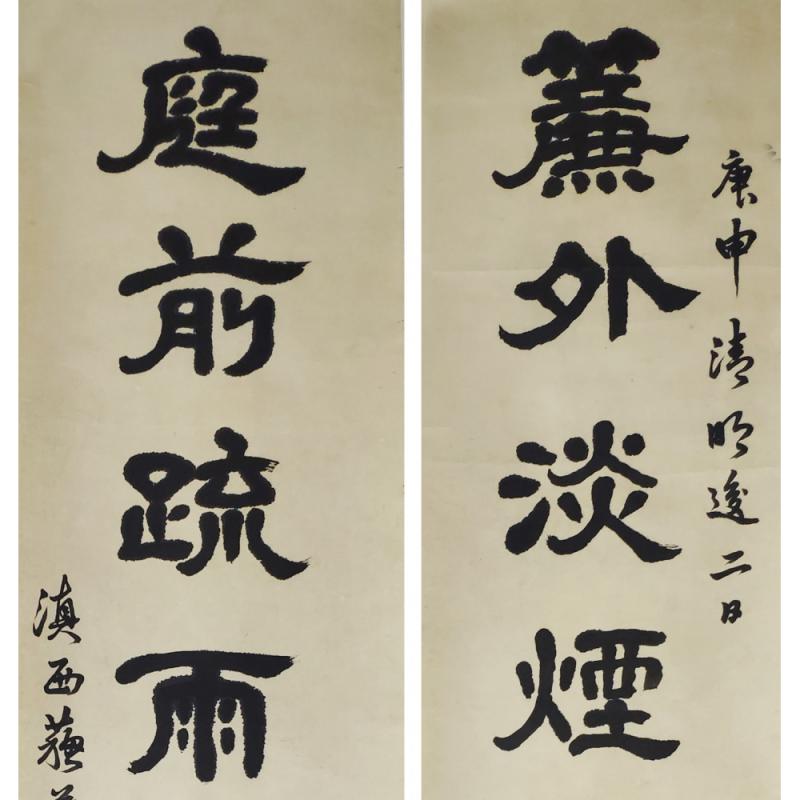 庚申清明後二日
簾外淡煙
庭前疏雨
滇西蘇